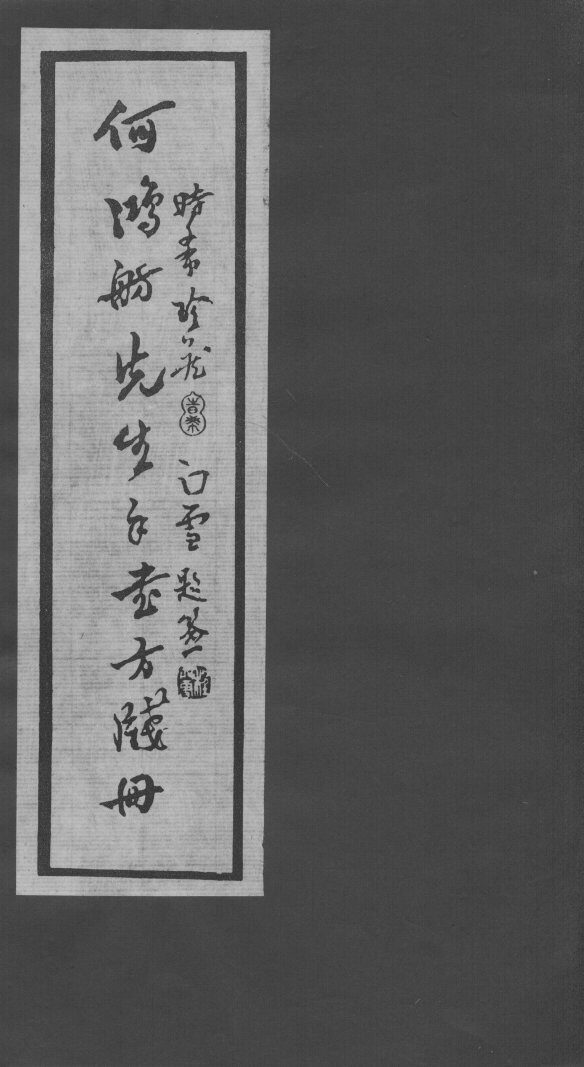 何鴻舫先生手書方牋冊
時希珍藏
白雪題籤